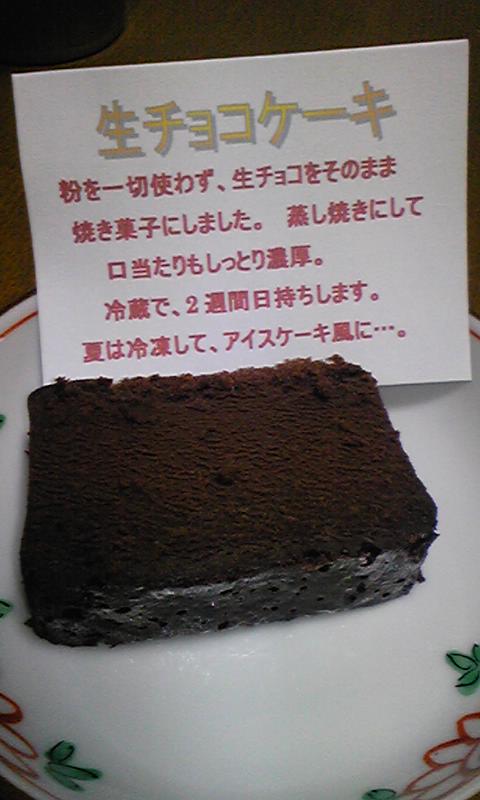 生チョコケーキ
粉を一切使わず、生チョコをそのまま
焼き菓子にしました。 蒸し焼きにして
口当たりもしっとり濃厚。
冷蔵で、2週間日持ちします。
夏は冷凍して、アイスケーキ風に…。